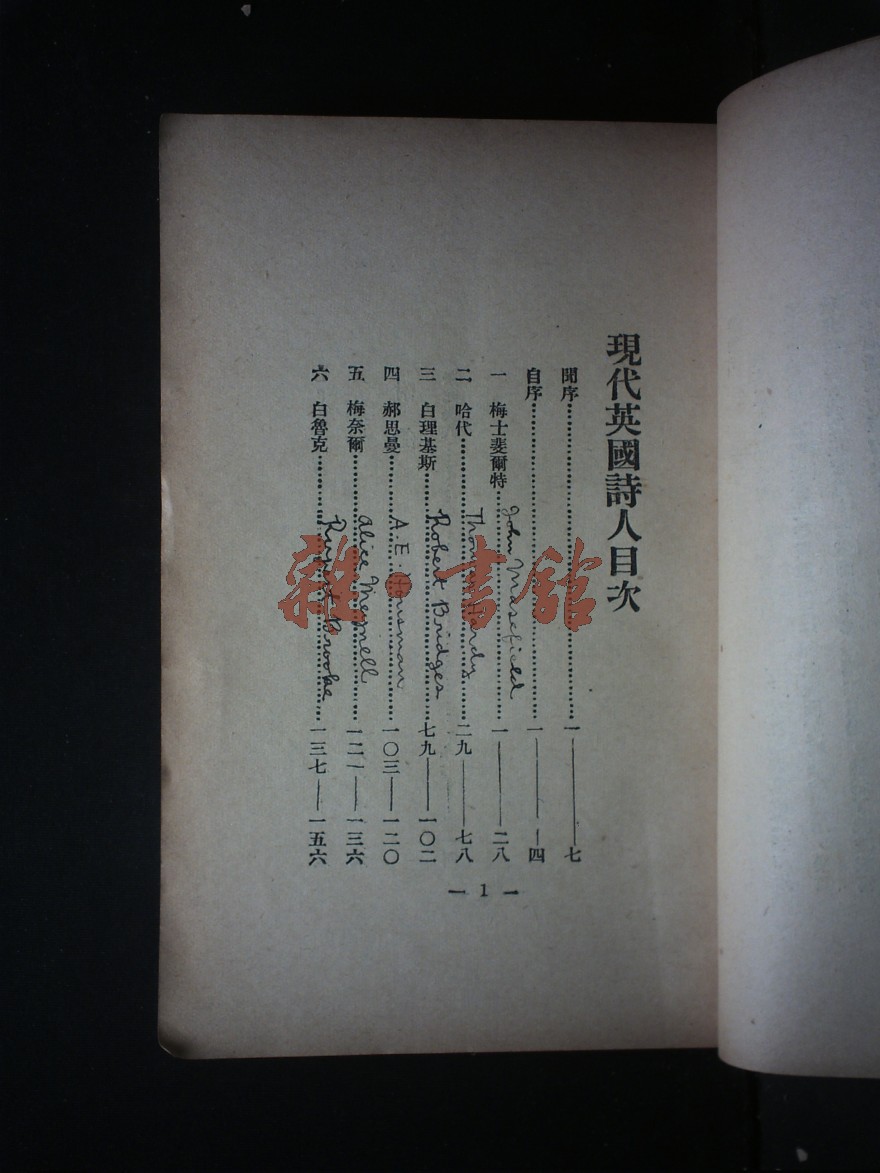 現代英國詩人目次
聞序……一——七
自序……一——一四
一 梅士斐爾特……一——二八
John Masefield
二 哈代……二九——七八
Thomas Hardy
三 白理基斯……七九——一〇二
Robert Bridges
四 郝思曼……一〇三——一二〇
A. E. Housman
五 梅奈爾……一二一——一三六
Alice Meynell
六 白魯克……一三七——一五六
Rupert Brooke
— 1 —
雜·書館